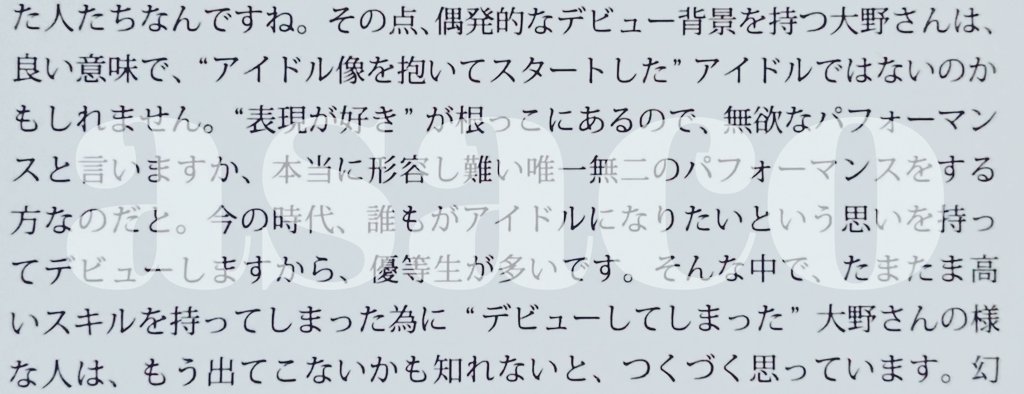 た人たちなんですね。その点、偶発的なデビュー背景を持つ大野さんは、
良い意味で、“アイドル像を抱いてスタートした” アイドルではないのか
もしれません。“表現が好き” が根っこにあるので、無欲なパフォーマン
スと言いますか、本当に形容し難い唯一無二のパフォーマンスをする
方なのだと。今の時代、誰もがアイドルになりたいという思いを持っ
てデビューしますから、優等生が多いです。そんな中で、たまたま高
いスキルを持ってしまった為に “デビューしてしまった” 大野さんの様
な人は、もう出てこないかも知れないと、つくづく思っています。幻
asaco